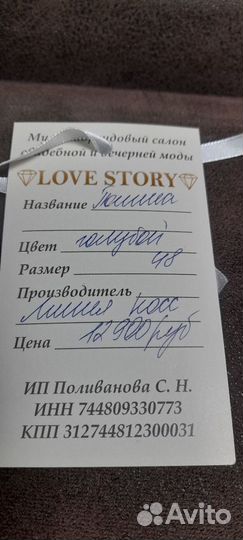 Мультибрендовый салон
свадебной и вечерней моды
LOVE STORY
Название Полина
Цвет голубой
Размер 48
Производитель
Линия Росс
Цена 12900 руб
ИП Поливанова С. Н.
ИНН 744809330773
КПП 312744812300031
Avito